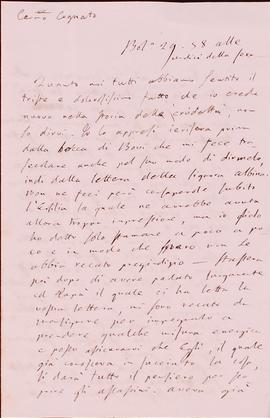 Caro Cognato
Bol.a 29. 88 alle
undici della sera
Quanto mi tutti abbiamo sentito il
triste e dolorosissimo fatto che io credo
nuovo nella storia della crudeltà, non
lo dirvi. Io lo appresi iersera prima
dalla bocca di Boni che mi fece
anche pel suo modo di dirmelo,
indi dalla lettera della signora
non ne feci però consapevole subito
l'Ersilia la quale ne avrebbe avuta
allora troppa impressione, ma io
ho detto solo a poco a po
co e in modo che spero non le
abbia recato pregiudizio — stassera
poi dopo di avere parlato lungamente
ed il quale ci ha letta la
vostra lettera, mi sono recato da
per impegnarlo a
prendere qualche misura energica
e posso assicurarvi che egli, il quale
già conosceva in succinto la cosa,
si darà tutto il pensiero per
gli assassini. aveva già